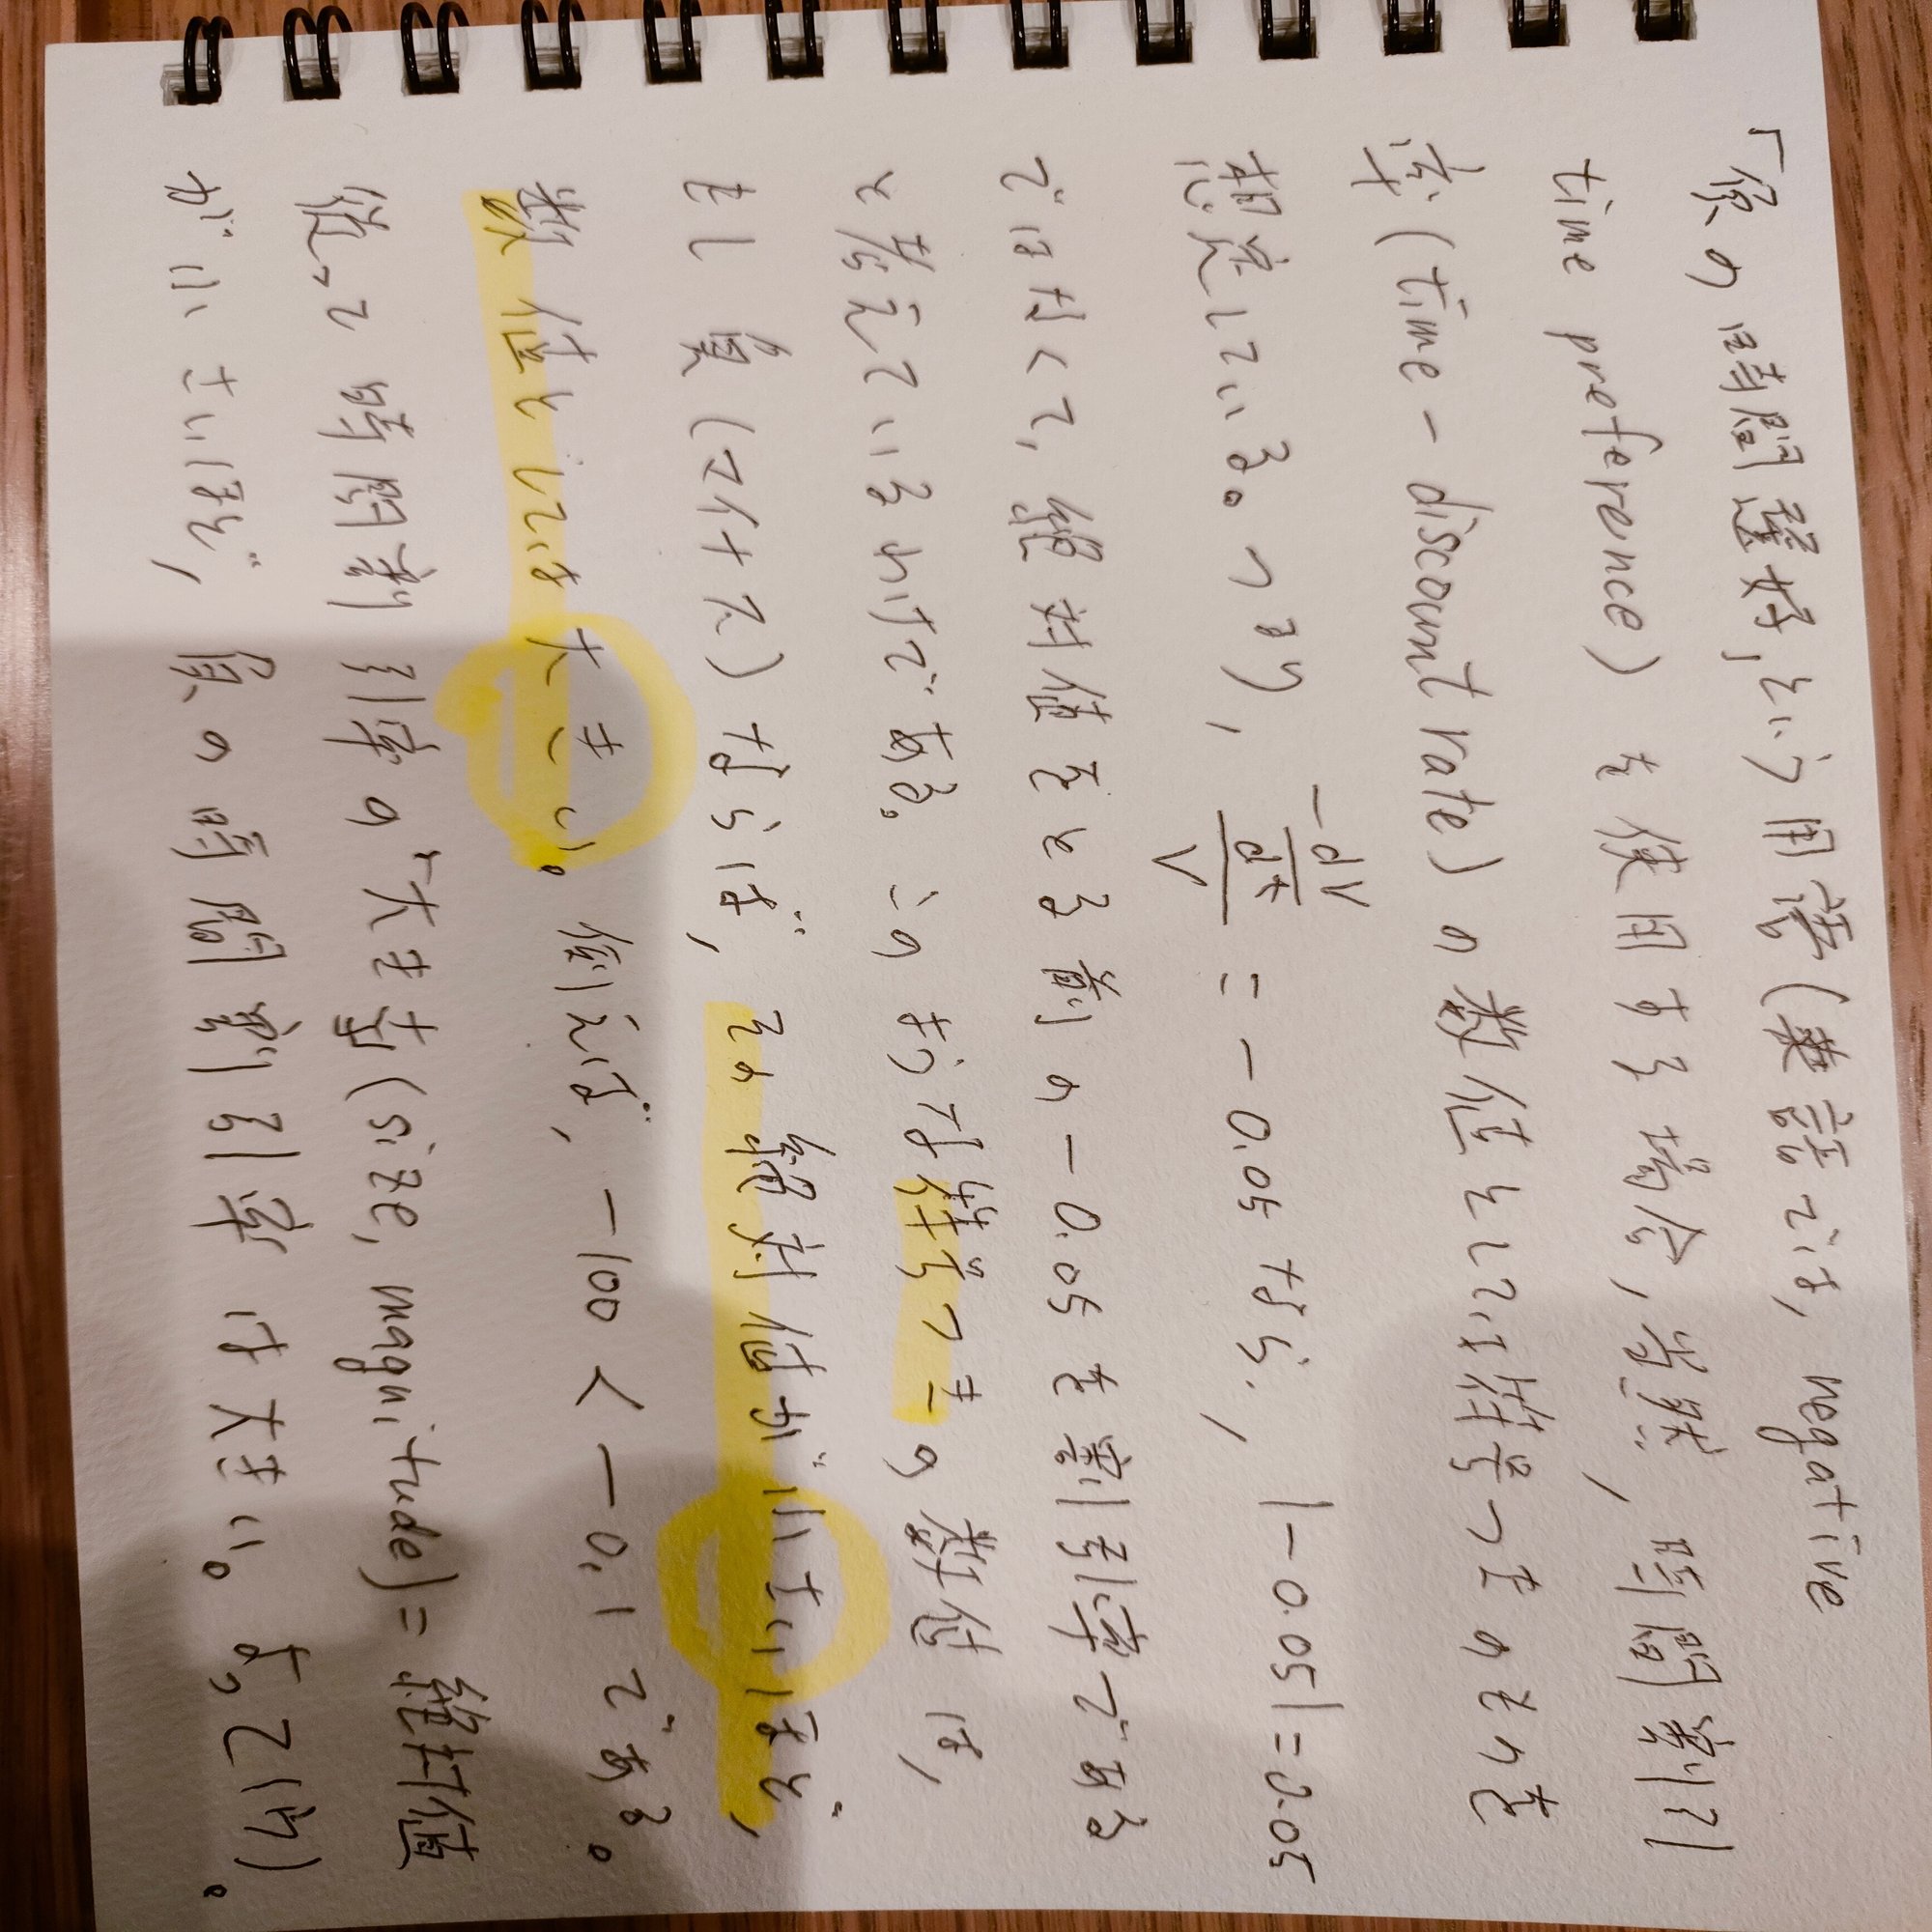 「負の時間選好」という用語(英語では, negative
time preference)を使用する場合, 当然, 時間割引
率(time-discount rate)の数値としては符号つきのそれを
想定している。つまり, -dV/dt / V = -0.05 なら, |-0.05|=0.05
ではなくて, 絶対値をとる前の -0.05 を割引率である
と考えているわけである。このような符号つきの数値は,
もし負(マイナス)ならば, その絶対値が小さいほど,
数値としては大きい。例えば, -100 < -0.1 である。
従って時間割引率の「大きさ」(size, magnitude)=絶対値
が小さいほど, 負の時間割引率は大きい。よって(4)。